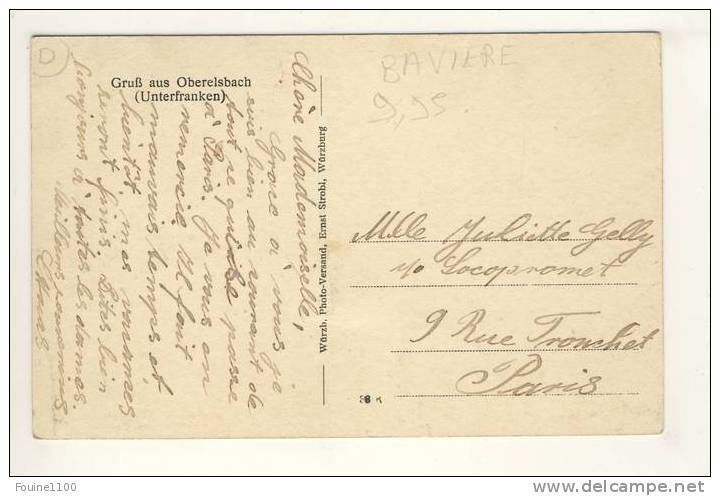 D
BAVIERE
9,95
Gruß aus Oberelsbach
(Unterfranken)
Chère Mademoiselle,
Grace à vous je
suis bien au courant de
tout ce qui se passe
à Paris. Je vous en
remercie. Il fait
mauvais temps et
bientôt mes vacances
seront finis. Dites bien
bonjours à toutes les dames.
Meilleurs
Würzb. Photo-Versand, Ernst Strobl, Würzburg
Mlle Juliette Gelly
c/o Socopromet
9 Rue Tronchet
Paris
Founine1100
www.delcampe.net